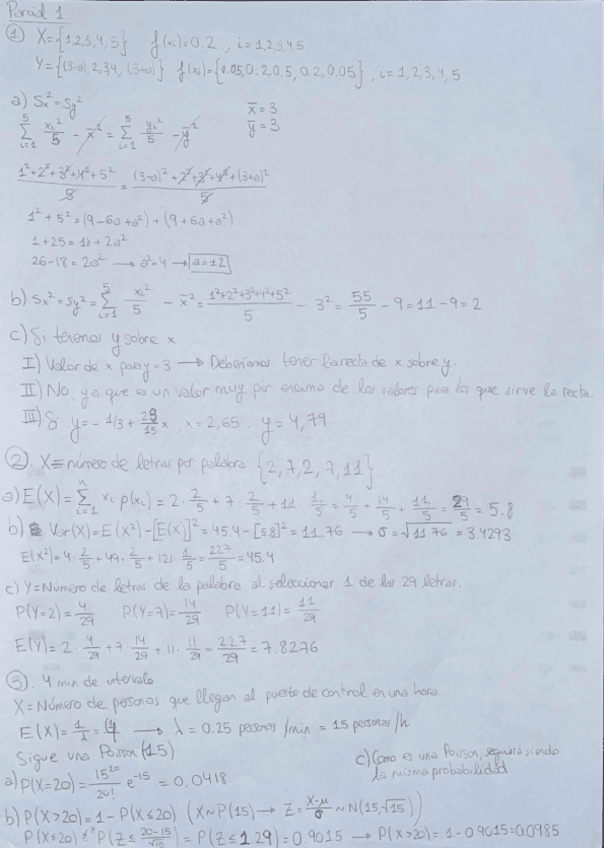 Parcial 1
① X={1,2,3,4,5} f(xi)=0.2 , i=1,2,3,4,5
Y={(3-a),2,3,4,(3+a)} f(xi)={0.05,0.2,0.5,0.2,0.05} , i=1,2,3,4,5
a) Sx²=Sy² x̄=3
∑ᵢ₌₁⁵ xi²/5 - x̄² = ∑ᵢ₌₁⁵ yi²/5 - ȳ² ȳ=3
(1²+2²+3²+4²+5²)/5 = ((3-a)²+2²+3²+4²+(3+a)²)/5
1²+5²=(9-6a+a²)+(9+6a+a²)
1+25=18+2a²
26-18=2a² → a²=4 → a=±2
b) Sx²=Sy²=∑ᵢ₌₁⁵ xi²/5 - x̄² = (1²+2²+3²+4²+5²)/5 - 3² = 55/5 - 9 = 11-9=2
c) Si tenemos y sobre x
I) Valor de x para y=3 → Deberíamos tener la recta de x sobre y.
II) No, ya que es un valor muy por encima de los valores para los que sirve la recta.
III) Si y=-1/3+29/15x , x=2,65 . y=4,79
② . X≡número de letras por palabra {2,7,2,7,11}
a) E(X)=∑ᵢ₌₁ⁿ xi p(xi)=2·2/5+7·2/5+11·1/5=4/5+14/5+11/5=29/5=5.8
b) Var(X)=E(X²)-[E(X)]²=45.4-[5.8]²=11.76 → σ=√11.76=3.4293
E(X²)=4·2/5+49·2/5+121·1/5=227/5=45.4
c) Y=Número de letras de la palabra al seleccionar 1 de las 29 letras.
P(Y=2)=4/29 P(Y=7)=14/29 P(Y=11)=11/29
E(Y)=2·4/29+7·14/29+11·11/29=227/29=7.8276
③ . 4 min de intervalo
X=Número de personas que llegan al puesto de control en una hora.
E(X)=1/λ=4 → λ=0.25 personas/min=15 personas/h
Sigue una Poisson(15)
c) Como es una Poisson, seguirá siendo
la misma probabilidad.
a) P(X=20)=15²⁰/20! e⁻¹⁵=0.0418
b) P(X>20)=1-P(X≤20) (X~P(15)→ Z=(X-μ)/σ ~N(15,√15))
P(X≤20)≤P(Z≤(20-15)/√15)=P(Z≤1.29)=0.9015 → P(X>20)=1-0.9015=0.0985